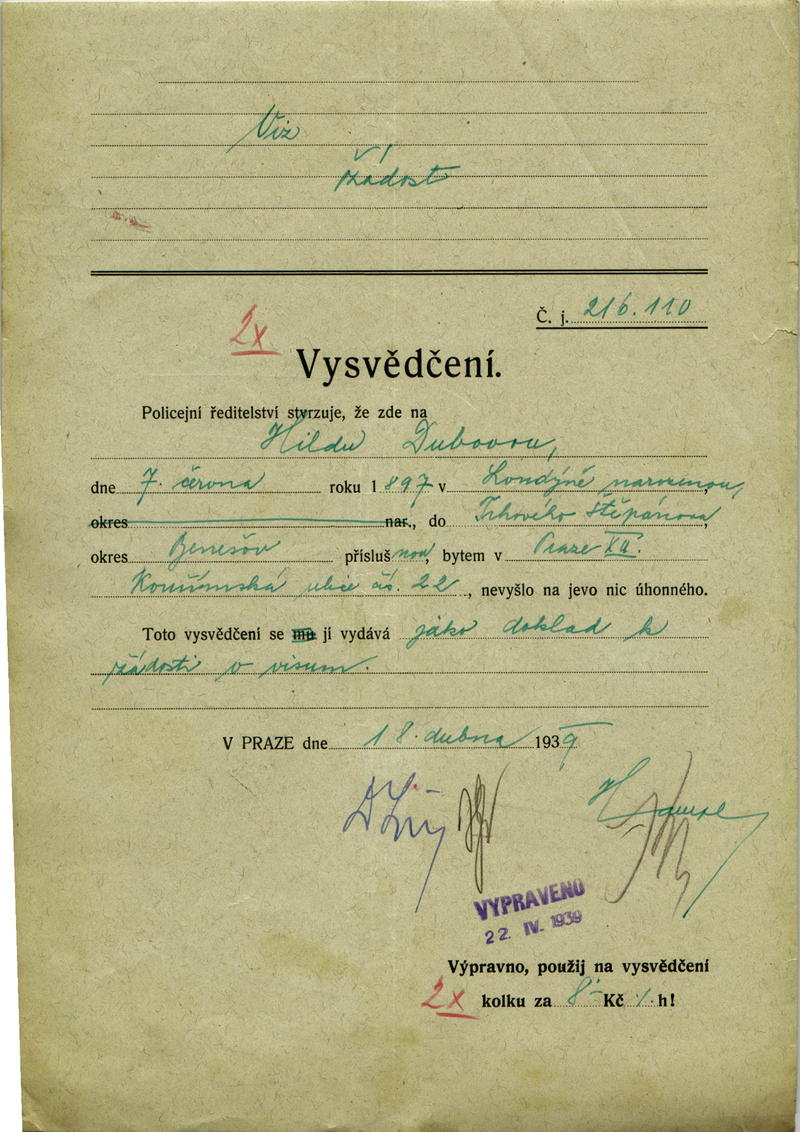 Viz
žádost
Č. j. 216.110
2x
Vysvědčení.
Policejní ředitelství stvrzuje, že zde na
Hildu Dubovou,
dne 7. června roku 1897 v Londýně narozenou,
okres nar., do Trhového Štěpánova,
okres Benešov příslušnou, bytem v Praze XII.
Kouřimská ulice čís. 22, nevyšlo na jevo nic úhonného.
Toto vysvědčení se mu jí vydává jako doklad k
žádosti o visum.
V PRAZE dne 18. dubna 1939
VYPRAVENO
22. IV. 1939
Výpravno, použij na vysvědčení
2x kolku za 8·- Kč h!